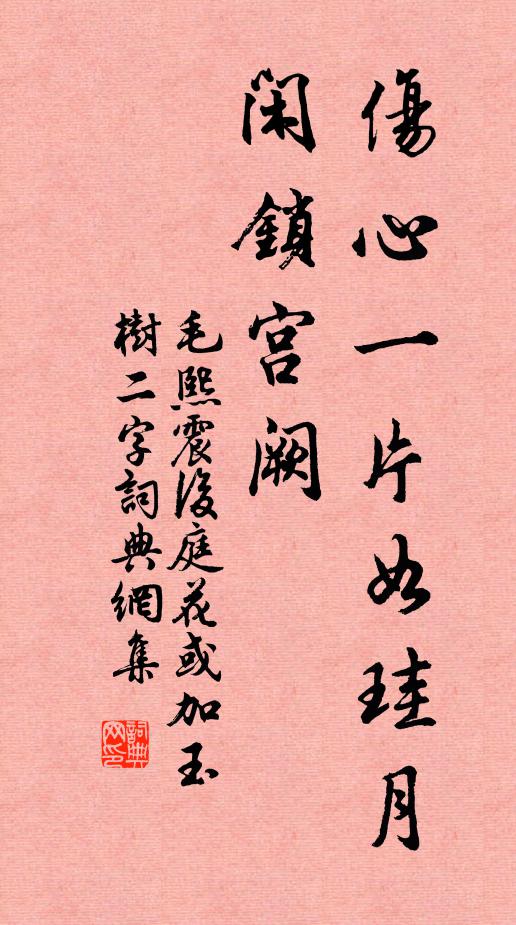 傷心一片如珪月
閑鎖宮闕
毛熙震後庭花或加玉
樹二字詞典網集
詞典
网印